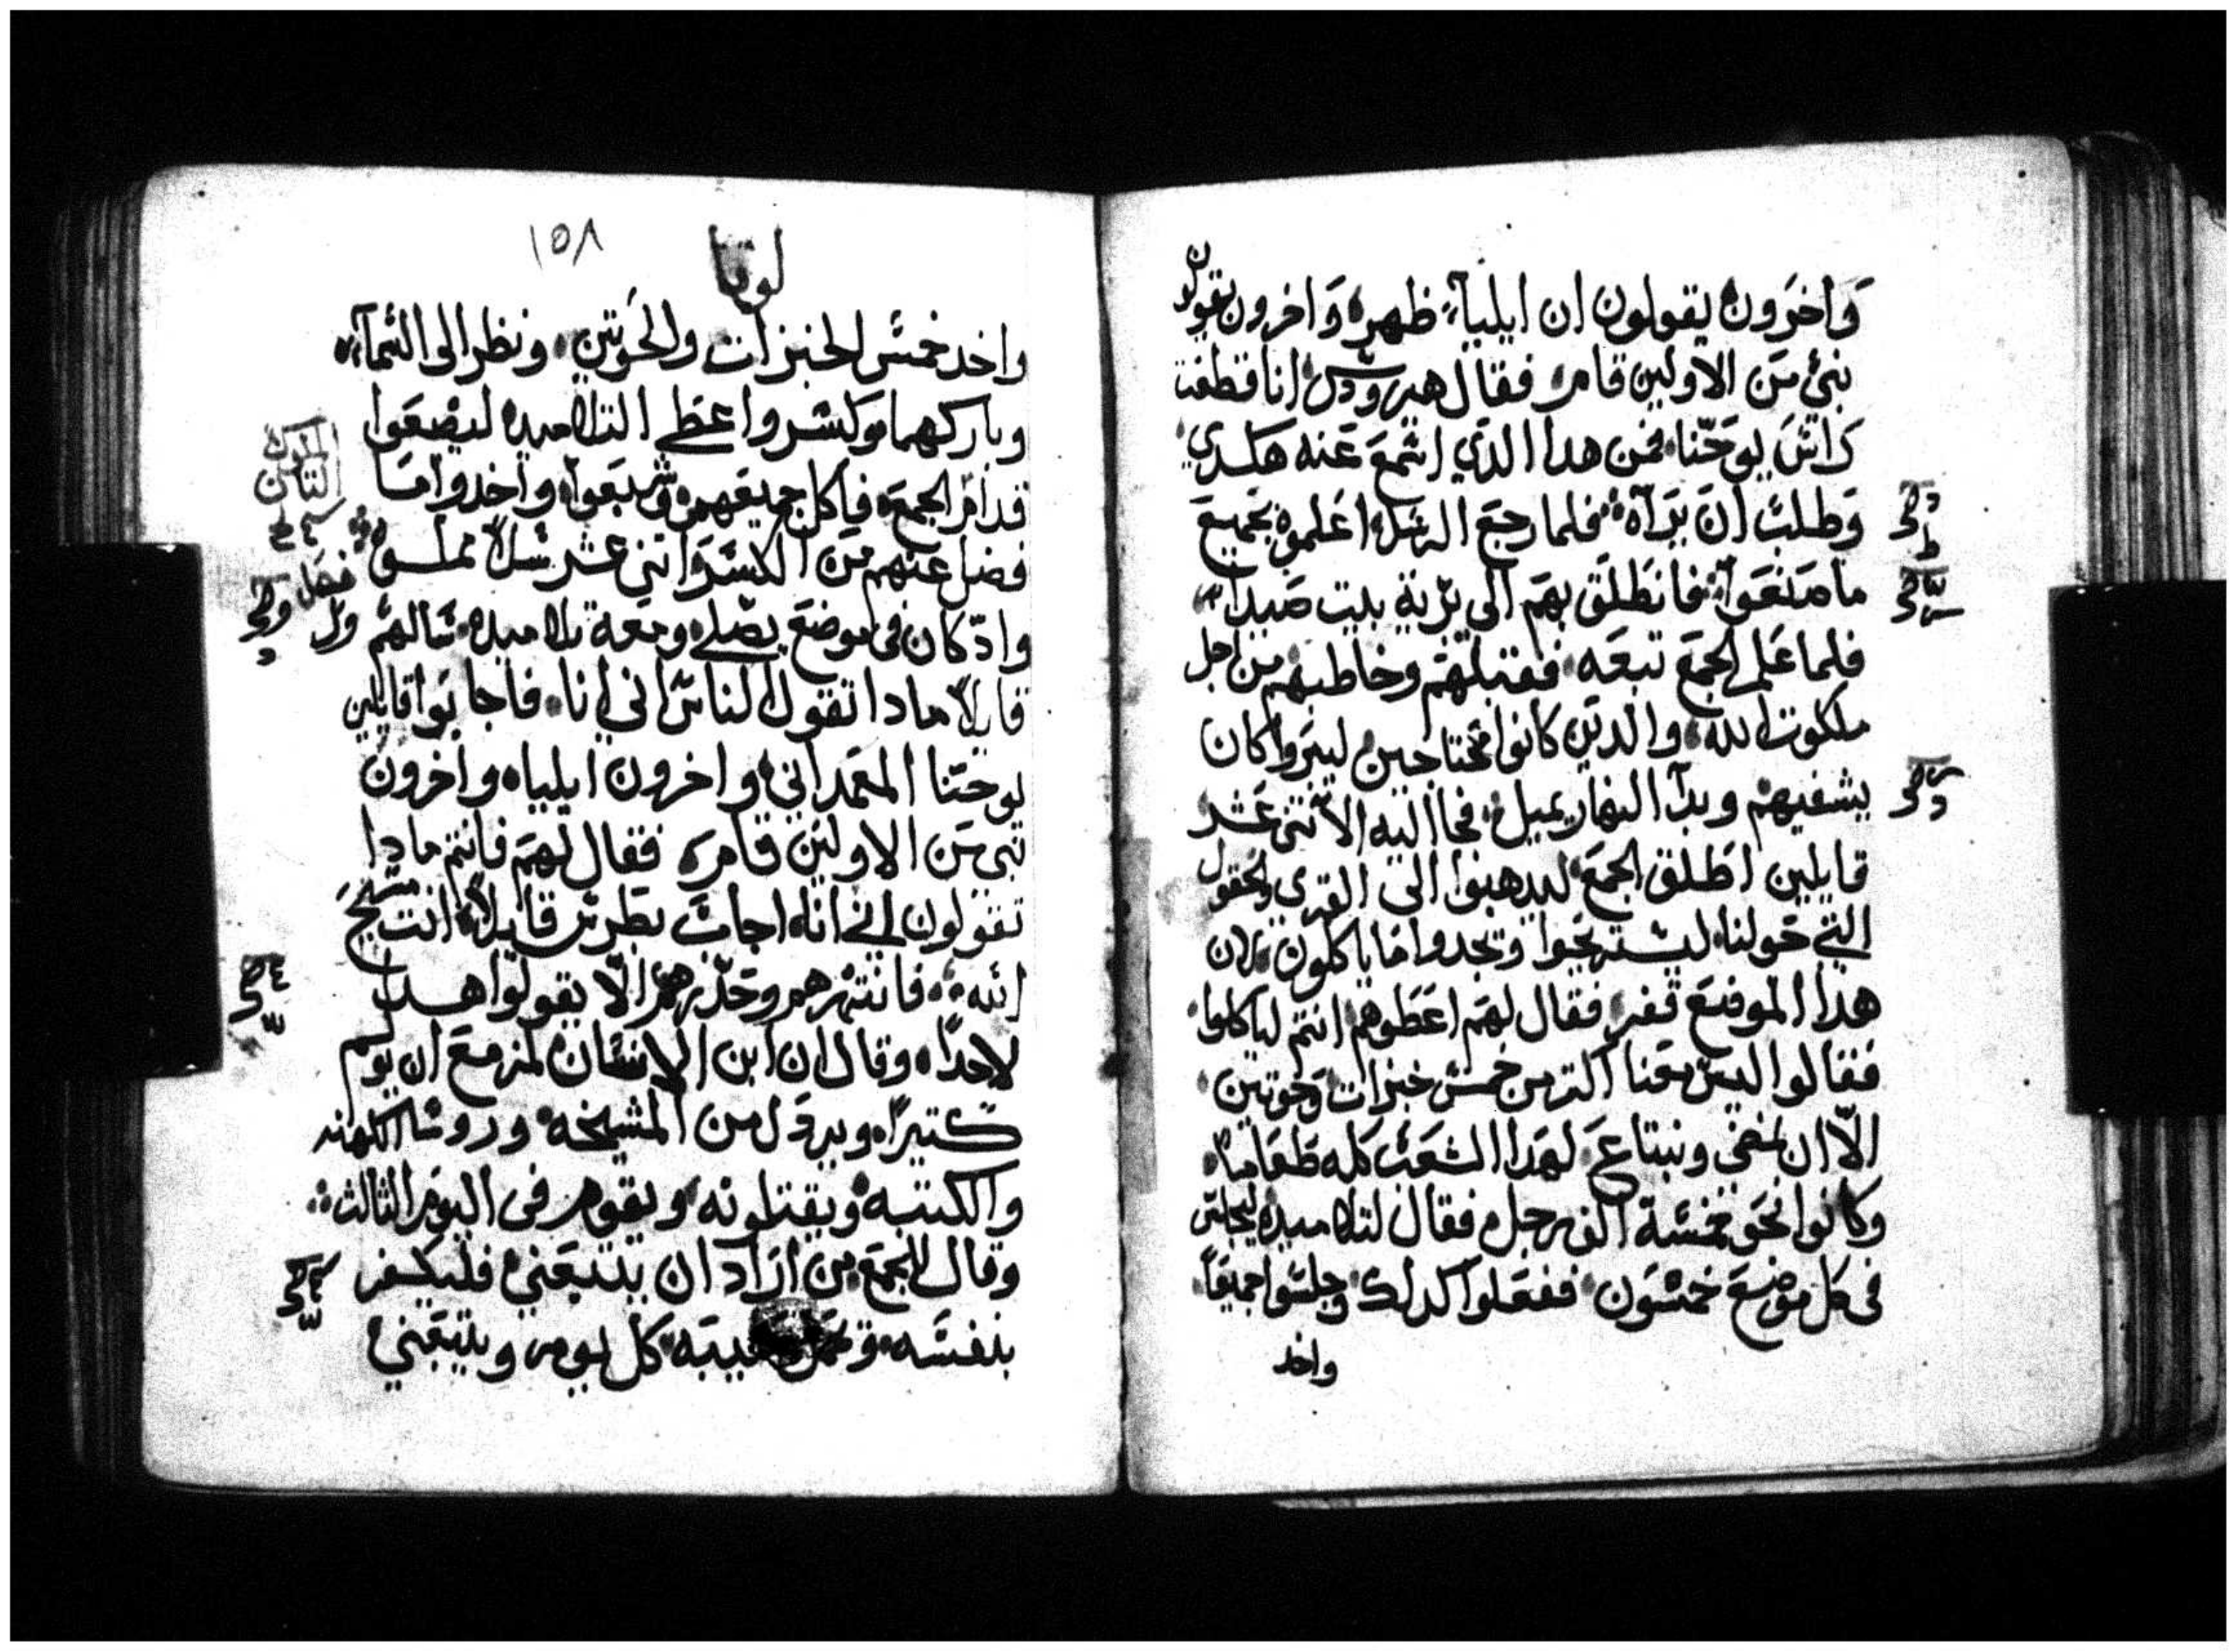 واخرون يقولون ان ايلياء ظهر واخرون يقولون
نبئ من الاولين قام فقال هيرودس انا قطعت
راس يوحنا فمن هدا الدي اسمع عنه هكدي
وطلب ان يرآه فلما رجع الرسل اعلموه بجميع
ما صنعوا فانطلق بهم الى برية بيت صيدا
فلما علم الجمع تبعه فقبلهم وخاطبهم من اجل
ملكوت الله والدين كانوا محتاجين ليبروا كان
يشفيهم وبدآ النهار يميل فجا اليه الاتنى عشر
قايلين اطلق الجمع ليدهبوا الى القرى والحقول
التي حولنا ليستريحوا ويجدوا ما ياكلون لان
هدا الموضع قفر فقال لهم اعطوهم انتم لياكلوا
فقالوا ليس معنا اكتر من خمس خبزات وحوتين
الّا ان نمضي ونبتاع لهدا الشعب كله طعاما
وكانوا نحو خمسة الف رجل فقال لتلاميده ليجلس
فى كل موضع خمسون ففعلوا كدلك وجلسوا جميعاً
واخد
لوقا
١٥٨
واخد خمس الخبزات والحوتين ونظر الى السمآء
وباركهما وكسر واعطى التلاميد ليضعوا
قدام الجمع فاكل جميعهم وشبعوا واخدوا ما
فضل عنهم من الكسر اتنى عشر سلاً مملوه
فصل
وادكان فى موضع يصلي ومعه تلاميده سالهم
قايلاً مادا تقول الناس اني انا فاجابوا قايلين
يوحنا المعمداني واخرون ايلياه واخرون
نبى من الاولين قام فقال لهم فانتم مادا
تقولون اني انا اجاب بطرس قايلاً انت مسيح
الله فانتهرهم وحدرهم الّا يقولوا هدا
لاحداً وقال ان ابن الانسان لمزمع ان يولم
كتيراً ويردل من المشيخه وروسا الكهنه
والكتبه ويقتلونه ويقوم فى اليوم الثالث
وقال للجمع من اراد ان يتبعني فليكفر
بنفسه كل يوم ويتبعني